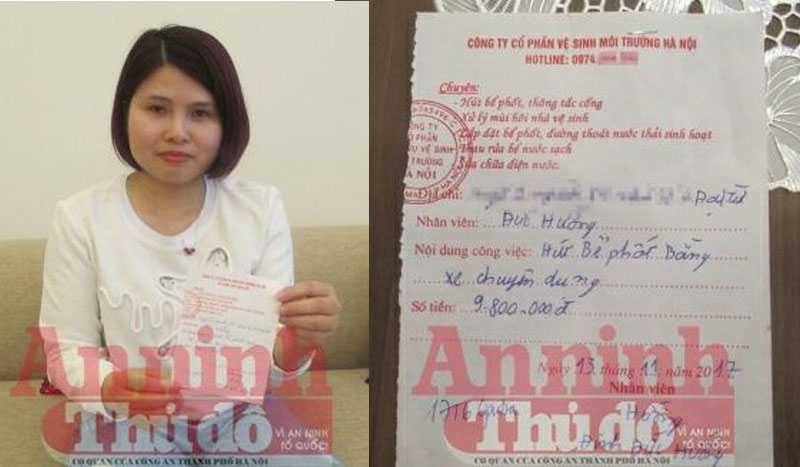 An ninh
Thủ đô
VÌ AN NINH
TỔ QUỐC!
CƠ QUAN CỦA CÔNG AN THÀNH PHỐ HÀ NỘI
CÔNG TY CỔ PHẦN VỆ SINH MÔI TRƯỜNG HÀ NỘI
HOTLINE: 0974
Chuyên:
- Hút bể phốt, thông tắc cống
- Xử lý mùi hôi nhà vệ sinh
- Lắp đặt bể phốt, đường thoát nước thải sinh hoạt
- Thau rửa bể nước sạch
- Sửa chữa điện nước.
CÔNG TY
CỔ PHẦN
VỤ VỆ SINH
TRƯỜNG
HÀ NỘI
Địa chỉ: Đại Từ
Nhân viên: Đức Hưởng
Nội dung công việc: Hút Bể phốt Bằng
xe chuyên dụng
Số tiền: 9.800.000đ
Ngày 13 tháng 11 năm 2017
Nhân viên
Hưởng
Đinh Đức Hưởng
An ninh
Thủ đô
VÌ AN NINH
TỔ QUỐC!
CƠ QUAN CỦA CÔNG AN THÀNH PHỐ HÀ NỘI